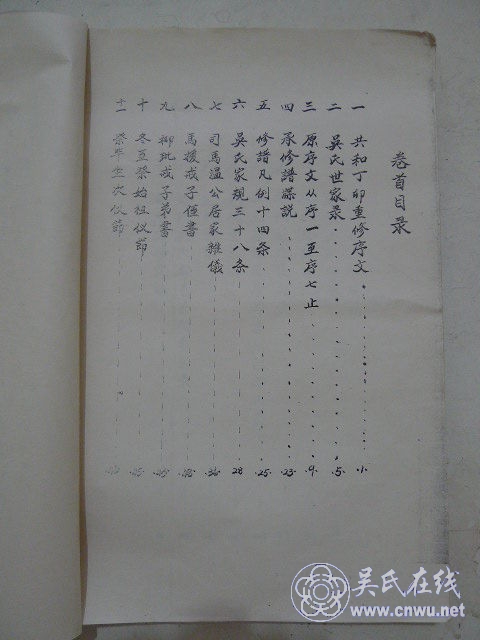 卷首目录
一 共和丁卯重修序文 1
二 吴氏世家录 5
三 原序文从序一至序七止 9
四 承修谱谍说 23
五 修谱凡例十四条 25
六 吴氏家规三十八条 28
七 司馬温公居家雜儀
八 馬援戒子侄書
九 柳玭戒子弟書
十 冬至祭始祖仪節
十一 祭毕坐次仪節
吴氏在线
www.cnwu.net